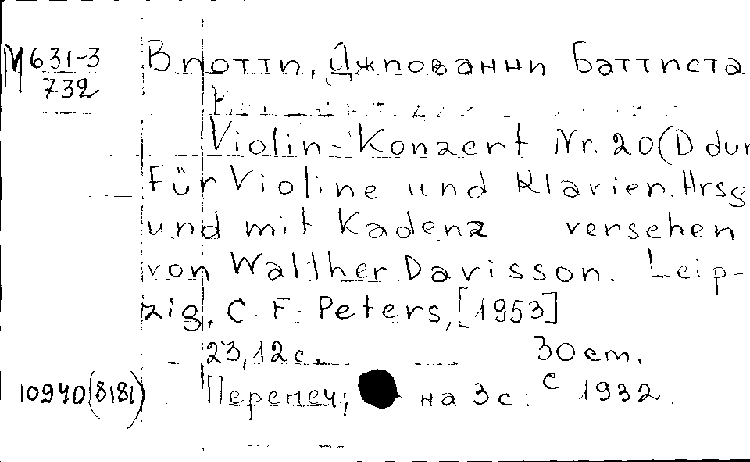 М 631-3
732
Виотти, Джиованни Баттиста
Violin-Konzert Nr. 20 (D dur
Für Violine und Klavier. Hrsg
und mit Kadenz versehen
von Walther Davisson. Leip-
zig, C. F. Peters, [1953]
23, 12 с. 30 cm.
10940(8181) Перепеч; на 3 с. с 1932.